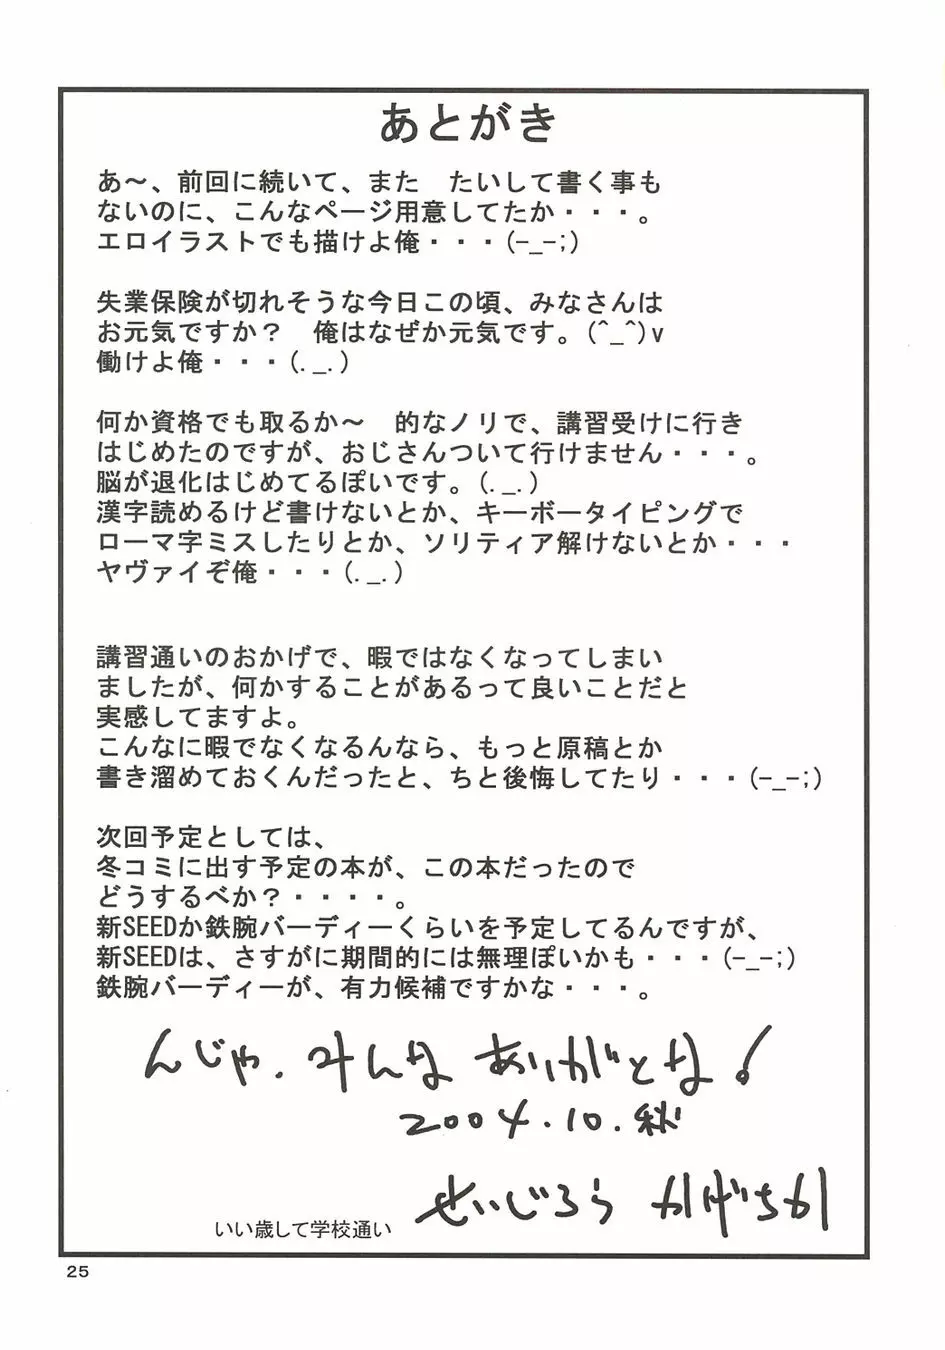 あとがき
あ～、前回に続いて、また　たいして書く事も
ないのに、こんなページ用意してたか・・・。
エロイラストでも描けよ俺・・・(-_-;)
失業保険が切れそうな今日この頃、みなさんは
お元気ですか？　俺はなぜか元気です。(^_^)v
働けよ俺・・・(._.)
何か資格でも取るか～　的なノリで、講習受けに行き
はじめたのですが、おじさんついて行けません・・・。
脳が退化はじめてるぽいです。(._.)
漢字読めるけど書けないとか、キーボータイピングで
ローマ字ミスしたりとか、ソリティア解けないとか・・・
ヤヴァイぞ俺・・・(._.)
講習通いのおかげで、暇ではなくなってしまい
ましたが、何かすることがあるって良いことだと
実感してますよ。
こんなに暇でなくなるんなら、もっと原稿とか
書き溜めておくんだったと、ちと後悔してたり・・・(-_-;)
次回予定としては、
冬コミに出す予定の本が、この本だったので
どうするべか？・・・・。
新SEEDか鉄腕バーディーくらいを予定してるんですが、
新SEEDは、さすがに期間的には無理ぽいかも・・・(-_-;)
鉄腕バーディーが、有力候補ですかな・・・。
んじゃ．みんな ありがとな！
2004.10.秋
いい歳して学校通い せいじろう かげちか
25